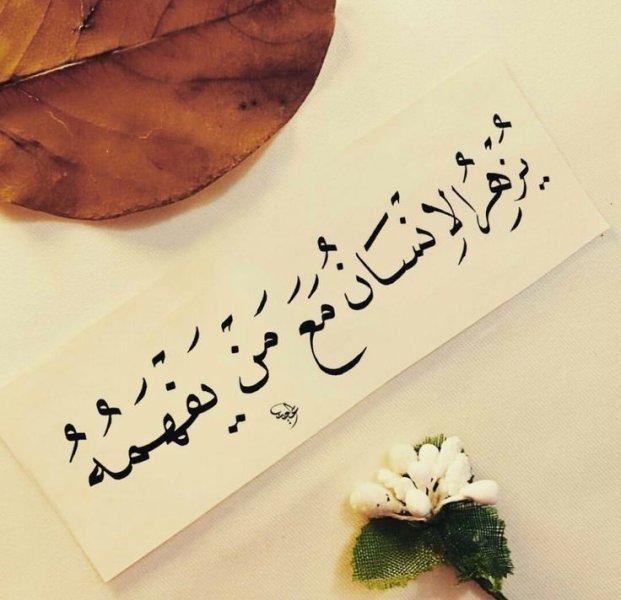 يُزهرُ الإنسَانُ مَعَ مَنْ يَفهَمُهُ